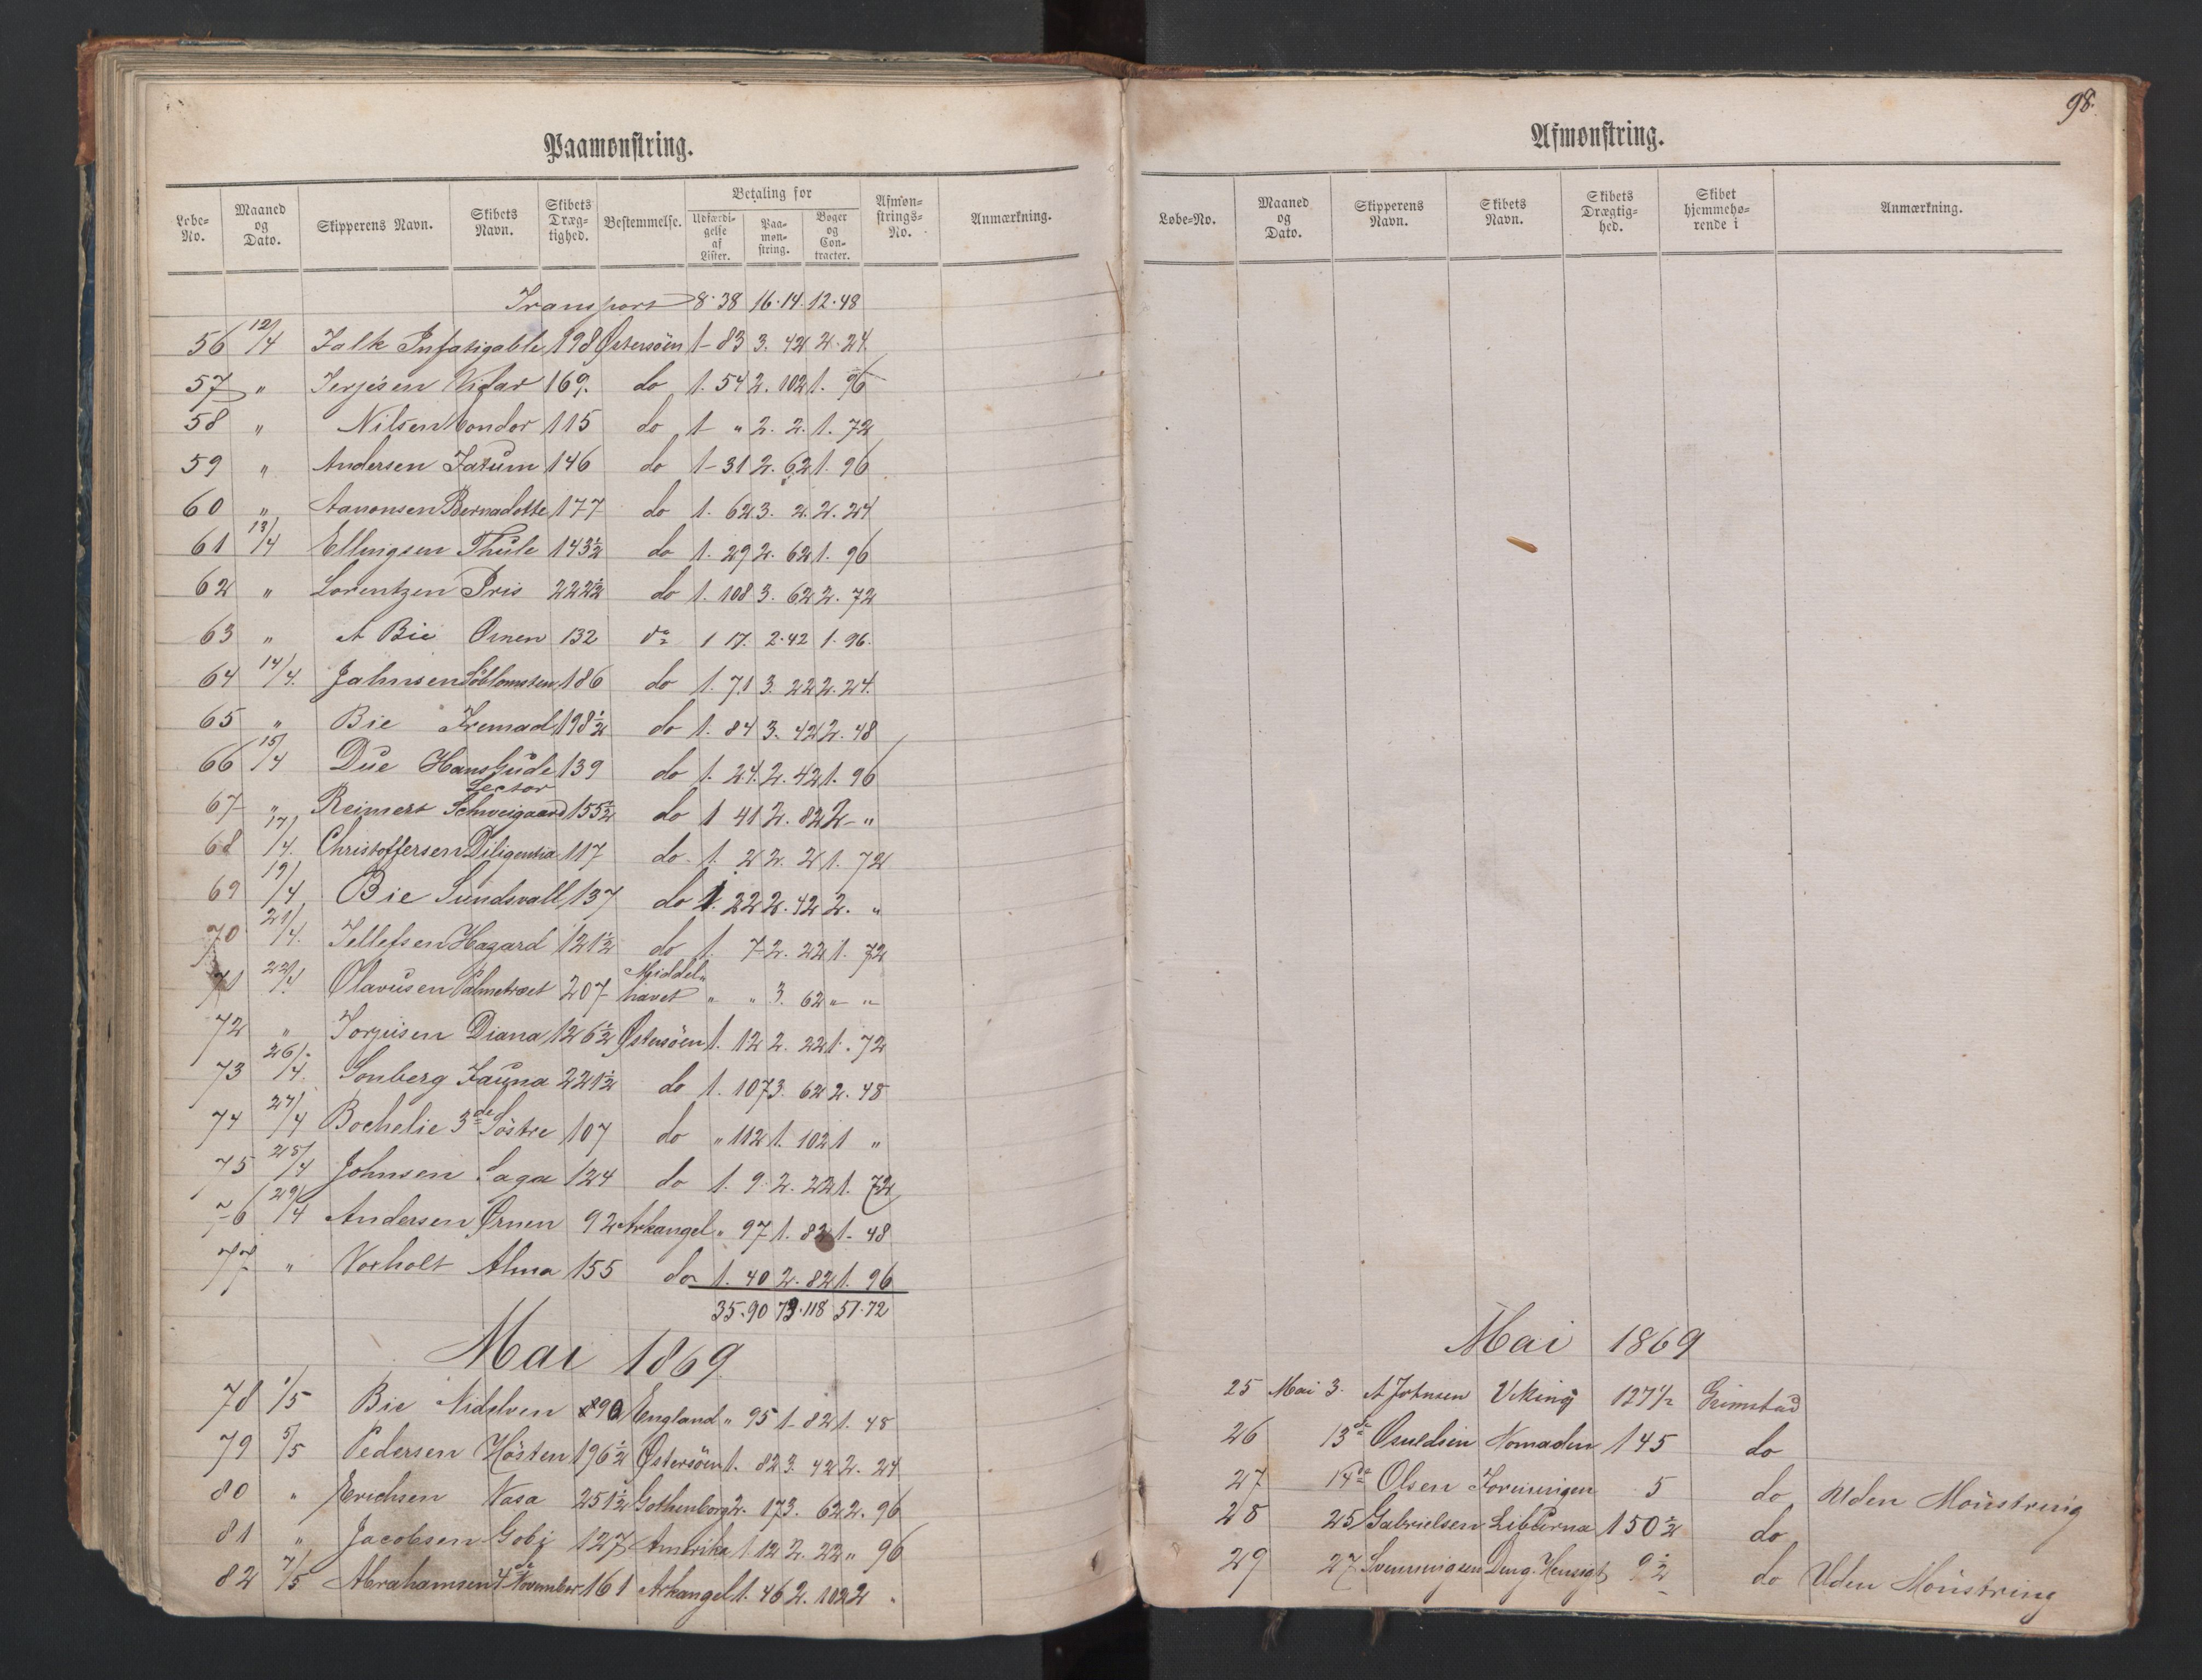 Paamønstring.
Løbe-No. Maaned og Dato. Skipperens Navn. Skibets Navn. Skibets Dræg-tighed. Bestemmelse. Betaling for Udfærdi-gelse af Lister. Paa-møn-string. Bøger og Con-tracter. Afmøn-strings-No. Anmærkning.
Transport 8·38 16·14· 12·48
56 12/4 Falk Infatigable 198 Østersöen 1- 83 3. 42 2. 24
57 " Terjesen Vidar 169. do 1. 54 2. 102 1. 96
58 " Nilsen Condor 115 do 1 " 2. 2. 1. 72
59 " Andersen Fatum 146 do 1- 31 2. 62 1. 96
60 " Aanonsen Bernadotte 177 do 1. 62 3. 2. 2. 24
61 13/4 Ellingsen Thule 143½ do 1. 29 2. 62 1. 96
62 " Lorentzen Iris 222½ do 1. 108 3. 62 2. 72
63 " A Bie Ørnen 132 do 1 17. 2·42 1. 96.
64 14/4. Jahnsen Söblomsten 186 do 1. 71 3. 22 2. 24.
65 " Bie Fremad 198½ do 1. 84 3. 42 2. 48
66 15/4 Due Hans Gude 139 do 1. 24. 2. 42 1. 96
67 " Reimert Lector Schweigaard 155½ do 1 41 2. 82 2- "
68 17/4. Christoffersen Diligentia 117 do. 1. 2 2. 2 1. 72
69 19/4 Bie Sundsvall 137 do 1. 22 2. 42 2. "
70 21/4. Tellefsen Hazard 121½ do 1. 7 2. 22 1. 72
71 22/4 Olavusen Palmetræet 207 Middel-havet " " 3. 62 " "
72 " Torjusen Diana 126½ Østersöen 1. 12 2. 22 1. 72
73 26/4. Sonberg Fauna 221½ do 1. 107 3. 62 2. 48
74 27/4 Bochelie 3de Söstre 107 do " 112 1. 102 1 "
75 28/4 Johnsen Saga 124 do 1. 9. 2. 22 1. 72
76 29/4 Andersen Ørnen 92 Arkangel " 97 1. 82 1- 48
77 " Voxholt Alma 155 do 1. 40 2. 82 1. 96
35·90 73·118 51·72
Mai 1869.
78 1/5 Bie Nidelven 90 England " 95 1- 82 1. 48
79 5/5 Pedersen Hösten 196½ Østersöen 1. 82 3. 42 2. 24
80 " Erichsen Vasa 251½ Gothenborg 2. 17 3. 62 2. 96
81 " Jacobsen Gobj 127 Amerika 1 12 2. 22 " 96
82 7/5 Abrahamsen 4de November 161 Arkangel 1. 46 2. 102 2 .
98.
Afmønstring.
Løbe-No. Maaned og Dato. Skipperens Navn. Skibets Navn. Skibets Drægtig-hed. Skibet hjemmehø-rende i Anmærkning.
Mai 1869
25 Mai 3. A Johnsen Viking 127½ Grimstad
26 13de Osuldsen Nomaden 145 do
27 14de Olsen Foreningen 5 do Uden Mönstring
28 25 Gabrielsen Liburna 150½ do
29 27 Svenningsen Den g. Hensigt 9½ do Uden Mönstring